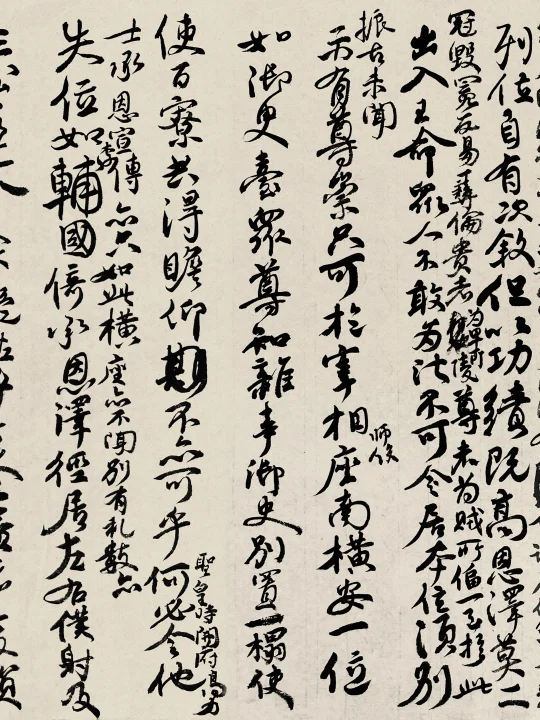 列位自有次敘但以功績既高恩澤莫二
冠毀冕反易彝倫貴者為卑所凌尊者為賊所偪一至於此
出入王命眾人不敢為比不可令居本位須別
振古未聞
示有尊崇只可於宰相師保座南橫安一位
如御史臺眾尊知雜事御史別置一榻使
使百寮共得瞻仰不亦可乎何必令他
聖皇時開府高力
士承恩宣傳亦只如此橫座亦不聞別有礼數亦
失位如李輔國倚承恩澤徑居左右僕射及